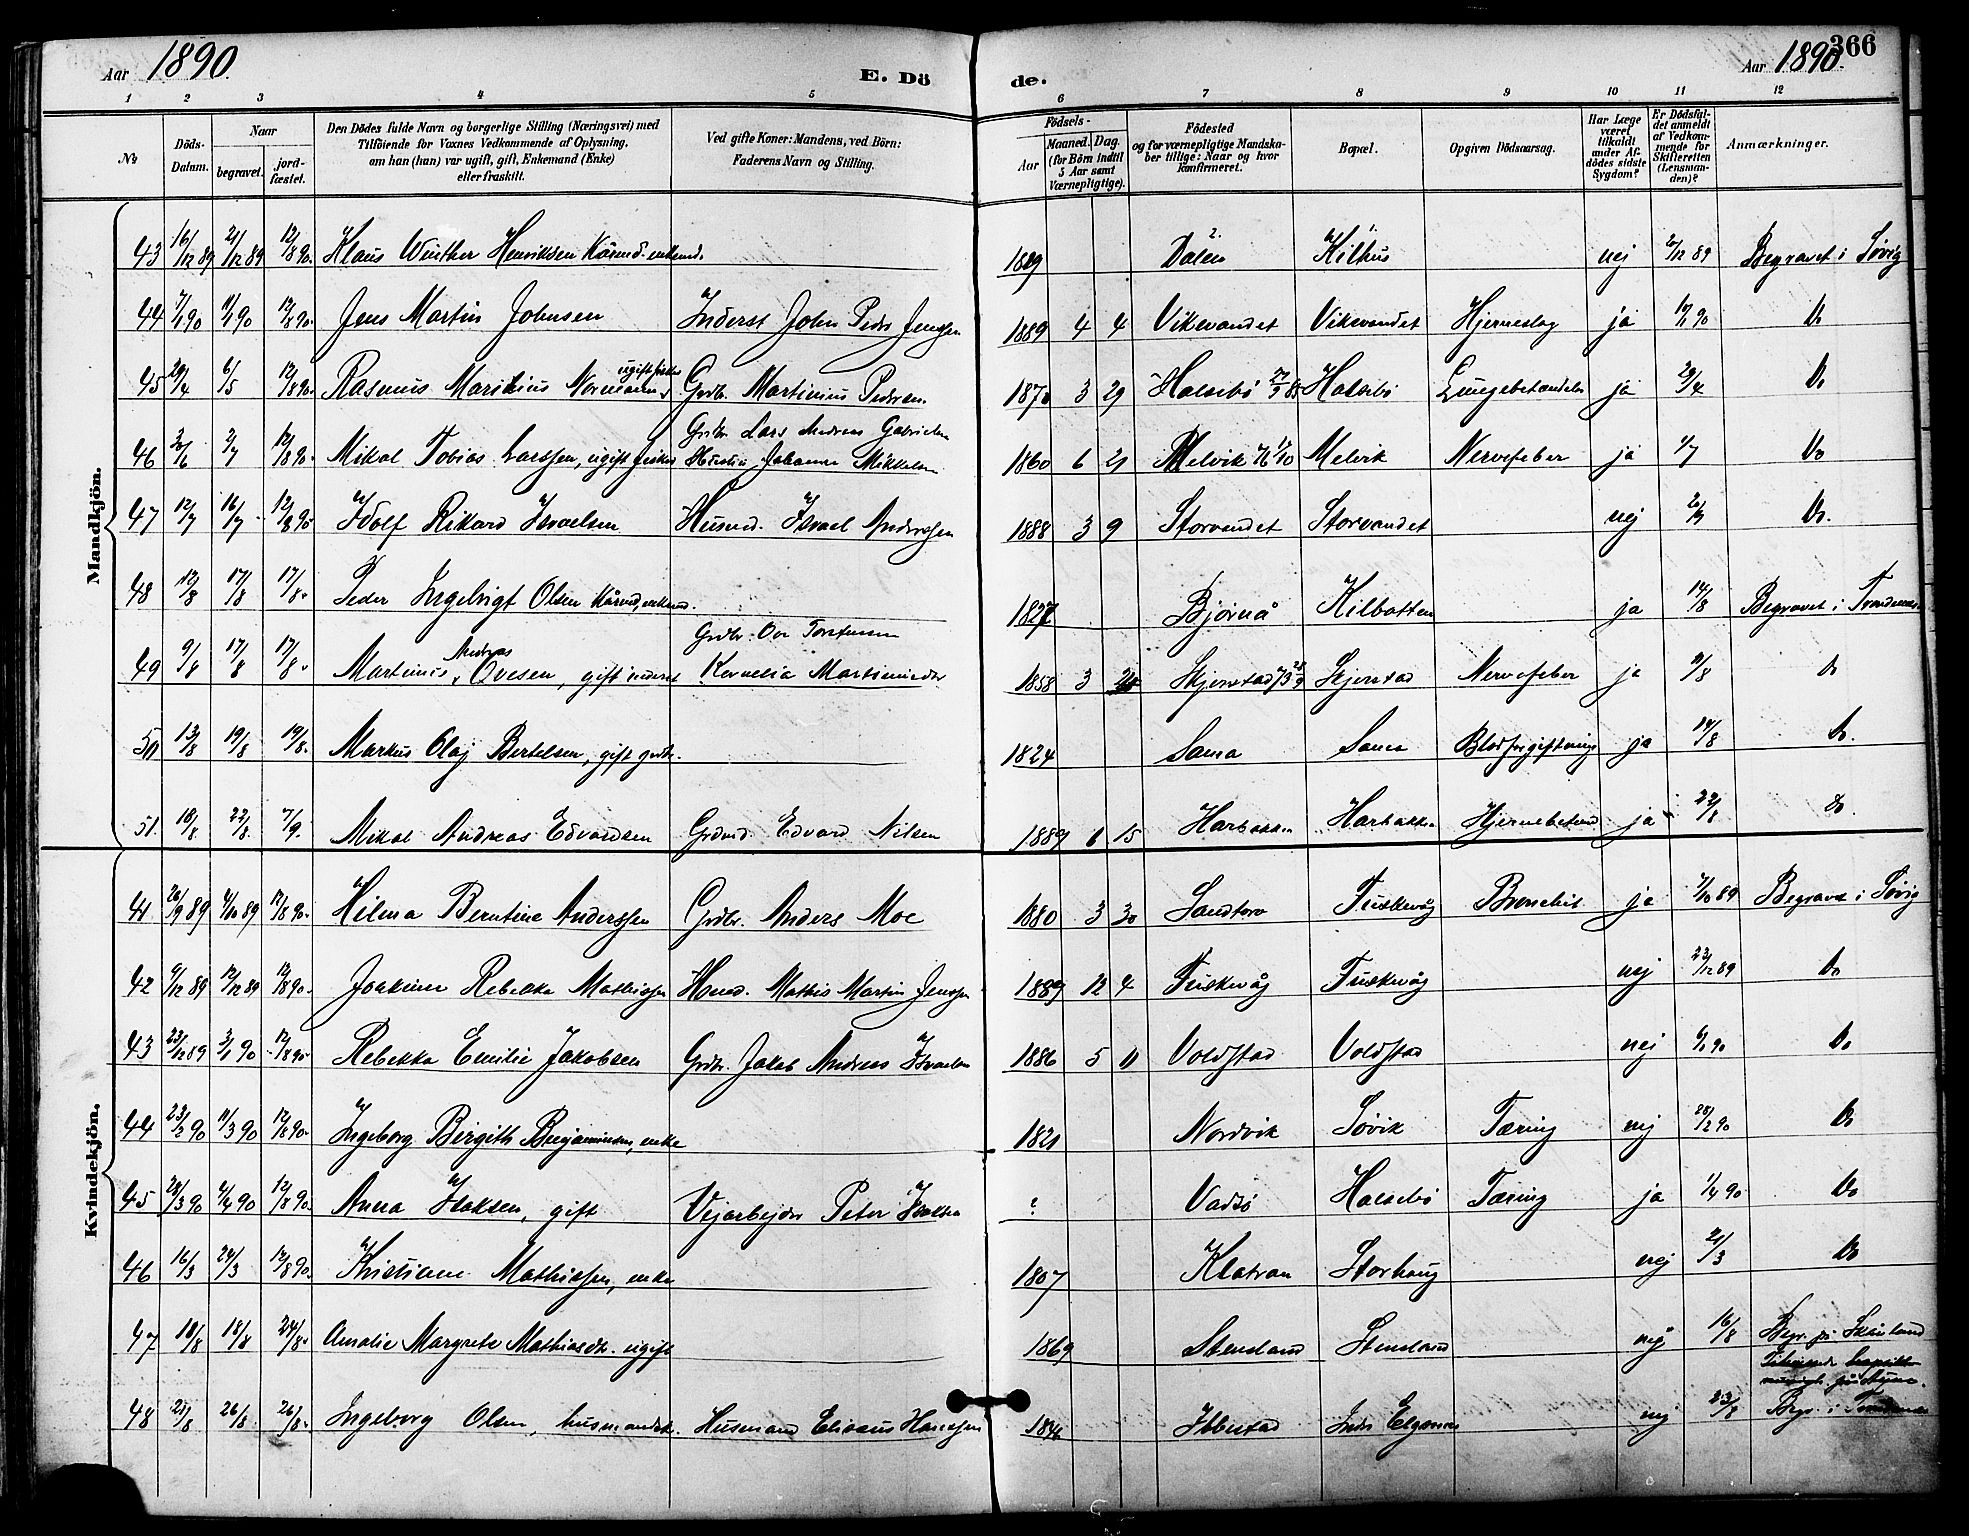 Aar 1890. E. Dö de. Aar 1890. 366
1 2 3 4 5 6 7 8 9 10 11 12
No
Döds-Datum.
Naar
begravet.
jord-fæstet.
Den Dödes fulde Navn og borgerlige Stilling (Næringsvei) med
Tilföiende for Voxnes Vedkommende af Oplysning,
om han (hun) var ugift, gift, Enkemand (Enke)
eller fraskilt.
Ved gifte Koner: Mandens, ved Börn:
Faderens Navn og Stilling.
Födsels-
Aar
Maaned. Dag.
(for Börn indtil
5 Aar samt
Værnepligtige).
Födested
og for værnepligtige Mandska-
ber tillige: Naar og hvor
konfirmeret.
Bopæl.
Opgiven Dödsaarsag.
Har Læge
været
tilkaldt
under Af-
dödes sidste
Sygdom?
Er Dödsfal-
det anmeldt
af Vedkom-
mende for
Skifteretten
(Lensman-
den)?
Anmærkninger.
Mandkjön.
43 16/12 89 21/12 89 12/8 90. Klaus Winther Henriksen Kårmd. enkemd. Dalen Kilhus nej /12 89 Begravet i Sövig
44 7/1 90 11/1 90 12/8 90. Jens Martin Johnsen Inderst John Peder Jensen 1889 4 4 Vikevandet Vikevandet Hjerneslag ja 10/1 90 Do
45 29/4 6/5 12/8 90. Rasmus Normann ugift fisker Grdbr. Martinius Pedersen 187 3 29 Halsebö Halsebö Lungebetændelse ja 29/4 Do
Grdbr. Lars Andreas Gabrielsen
46 /6 3/7 12/8 90. Mikal Tobias Larssen, ugift fisker Hustru Johanna 1860 6 21 Melvik Melvik Nervefeber ja 1/7 Do
47 12/7 16/7 12/8 90 Idolf Rikard Israelsen Husmd. Israel Anderssen 1888 3 9 Storvandet Storvandet nej Do.
48 12/8 17/8 17/8. Peder Ingebrigt Olsen Kårmd, enkemd. 1827 Bjørnå Kilbotten ja 14/8 Begravet i Trondenæs
Grdbr. Ove Torstensen
49 9/8 17/8 17/8. Martinus Andreas Ovesen, gift inderst Kornelia 1858 3 Skjerstad Skjerstad Nervefeber ja /8 Do
50 13/8 19/8 19/8. Markus Olaj Bertelsen, gift grdbr. 1824 Sama Sama Blodforgiftning ja 14/8 Do.
51. 18/8 22/8. 7/9. Mikal Andreas Edvardsen Grdmd. Edvard Nilsen 1889 6 15 Harbakken Harbakken ja 22/8 Do.
Kvindekjön.
41 26/9 89 4/10 89 12/8 90. Hilma Berntine Anderssen Grdbr. Anders Moe 1880 3 30 Sandtorv Fuskevåg Bronchit ja 7/10 89 Begravet i Sövig
42 9/12 89 12/12 89 12/8 90. Joakime Rebekka Mathissen Husmd. Mathis Martin Jenssen 1889 12 4 Fuskevåg Fuskevåg nej 23/12 89 Do
43 23/12 89 3/1 90 12/8 90 Rebekka Emilie Jakobsen Grdbr. Jakob Andreas Israelsen 1886 5 11 Voldstad Voldstad nej 6/1 90 Do
44 23/2 90 11/3 90 12/8 90. Ingeborg Bergith Benjaminsen, enke 1821 Nordvik Sövik Tæring nej 28/2 90 Do
45 28/3 90 4/4 90 12/8 90. Anna Isaksen, gift Vejarbejder Peter Isaksen ? Vadsö Halsebö Tæring ja 1/4 90 Do
46 16/3 24/3 12/8 90. Kristiane Mathissen, enke 1807 Klatran Storhaug nej 21/3 Do
47 10/8 18/8 24/8. Amalie Margrete Mathiasdtr. ugift 1869 Stensland Stensland nej 16/8 Begr. på Skånland
48 21/8 26/8. 26/8. Ingeborg Olsen, husmandsk. Husmand Eliseus Hanssen 1846 Ibbestad Elgsnes nej 23/8 Begr. i Trondenæs